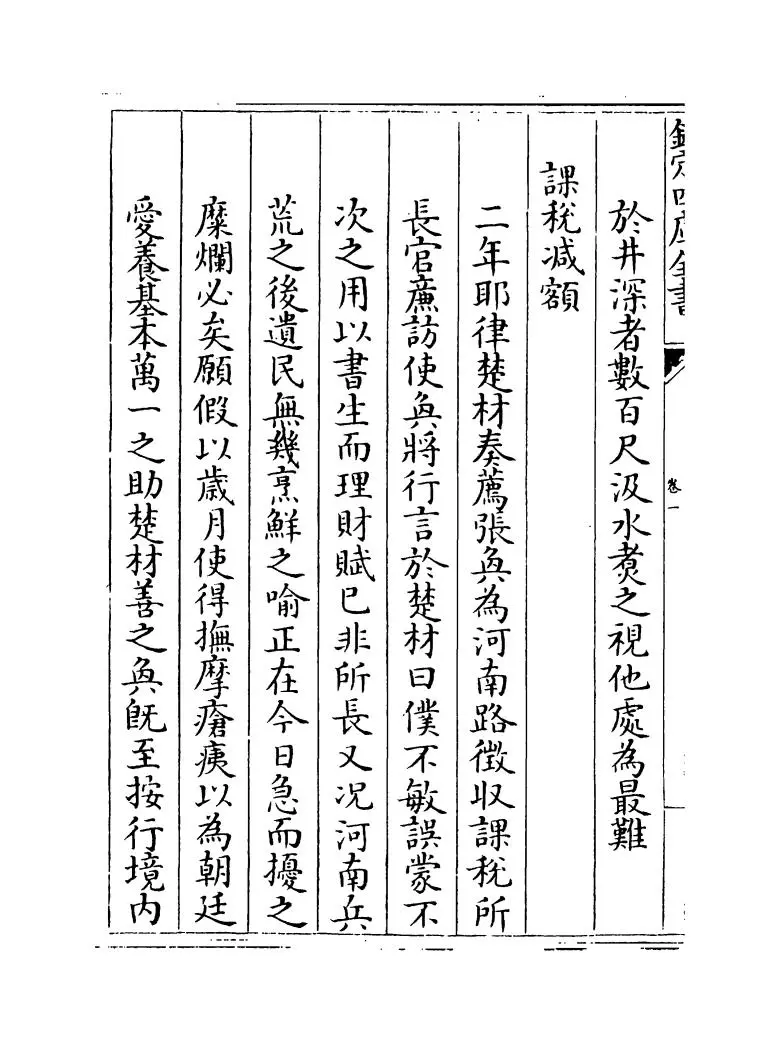 欽定四庫全書
卷一
於井深者數百尺汲水煑之視他處為最難
課税减額
二年耶律楚材奏薦張奐為河南路徵収課税所
長官亷訪使奐將行言於楚材曰僕不敏誤蒙不
次之用以書生而理財賦已非所長又况河南兵
荒之後遺民無幾烹鮮之喻正在今日急而擾之
糜爛必矣願假以歲月使得撫摩瘡痍以為朝廷
愛養基本萬一之助楚材善之奐既至按行境内